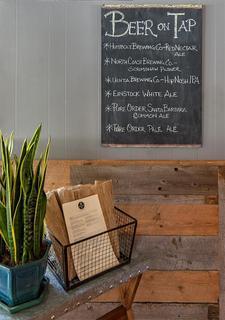 BEER ON TAP
* HUMBOLT BREWING CO-RED NECTAR
ALE
* NORTH COAST BREWING CO-
SCRIMSHAW PILSNER
* UINTA BREWING CO-HOP NOSH IPA
* EINSTOCK WHITE ALE
* PURE ORDER SANTA BARBARA
COMMON ALE
* PURE ORDER PALE ALE